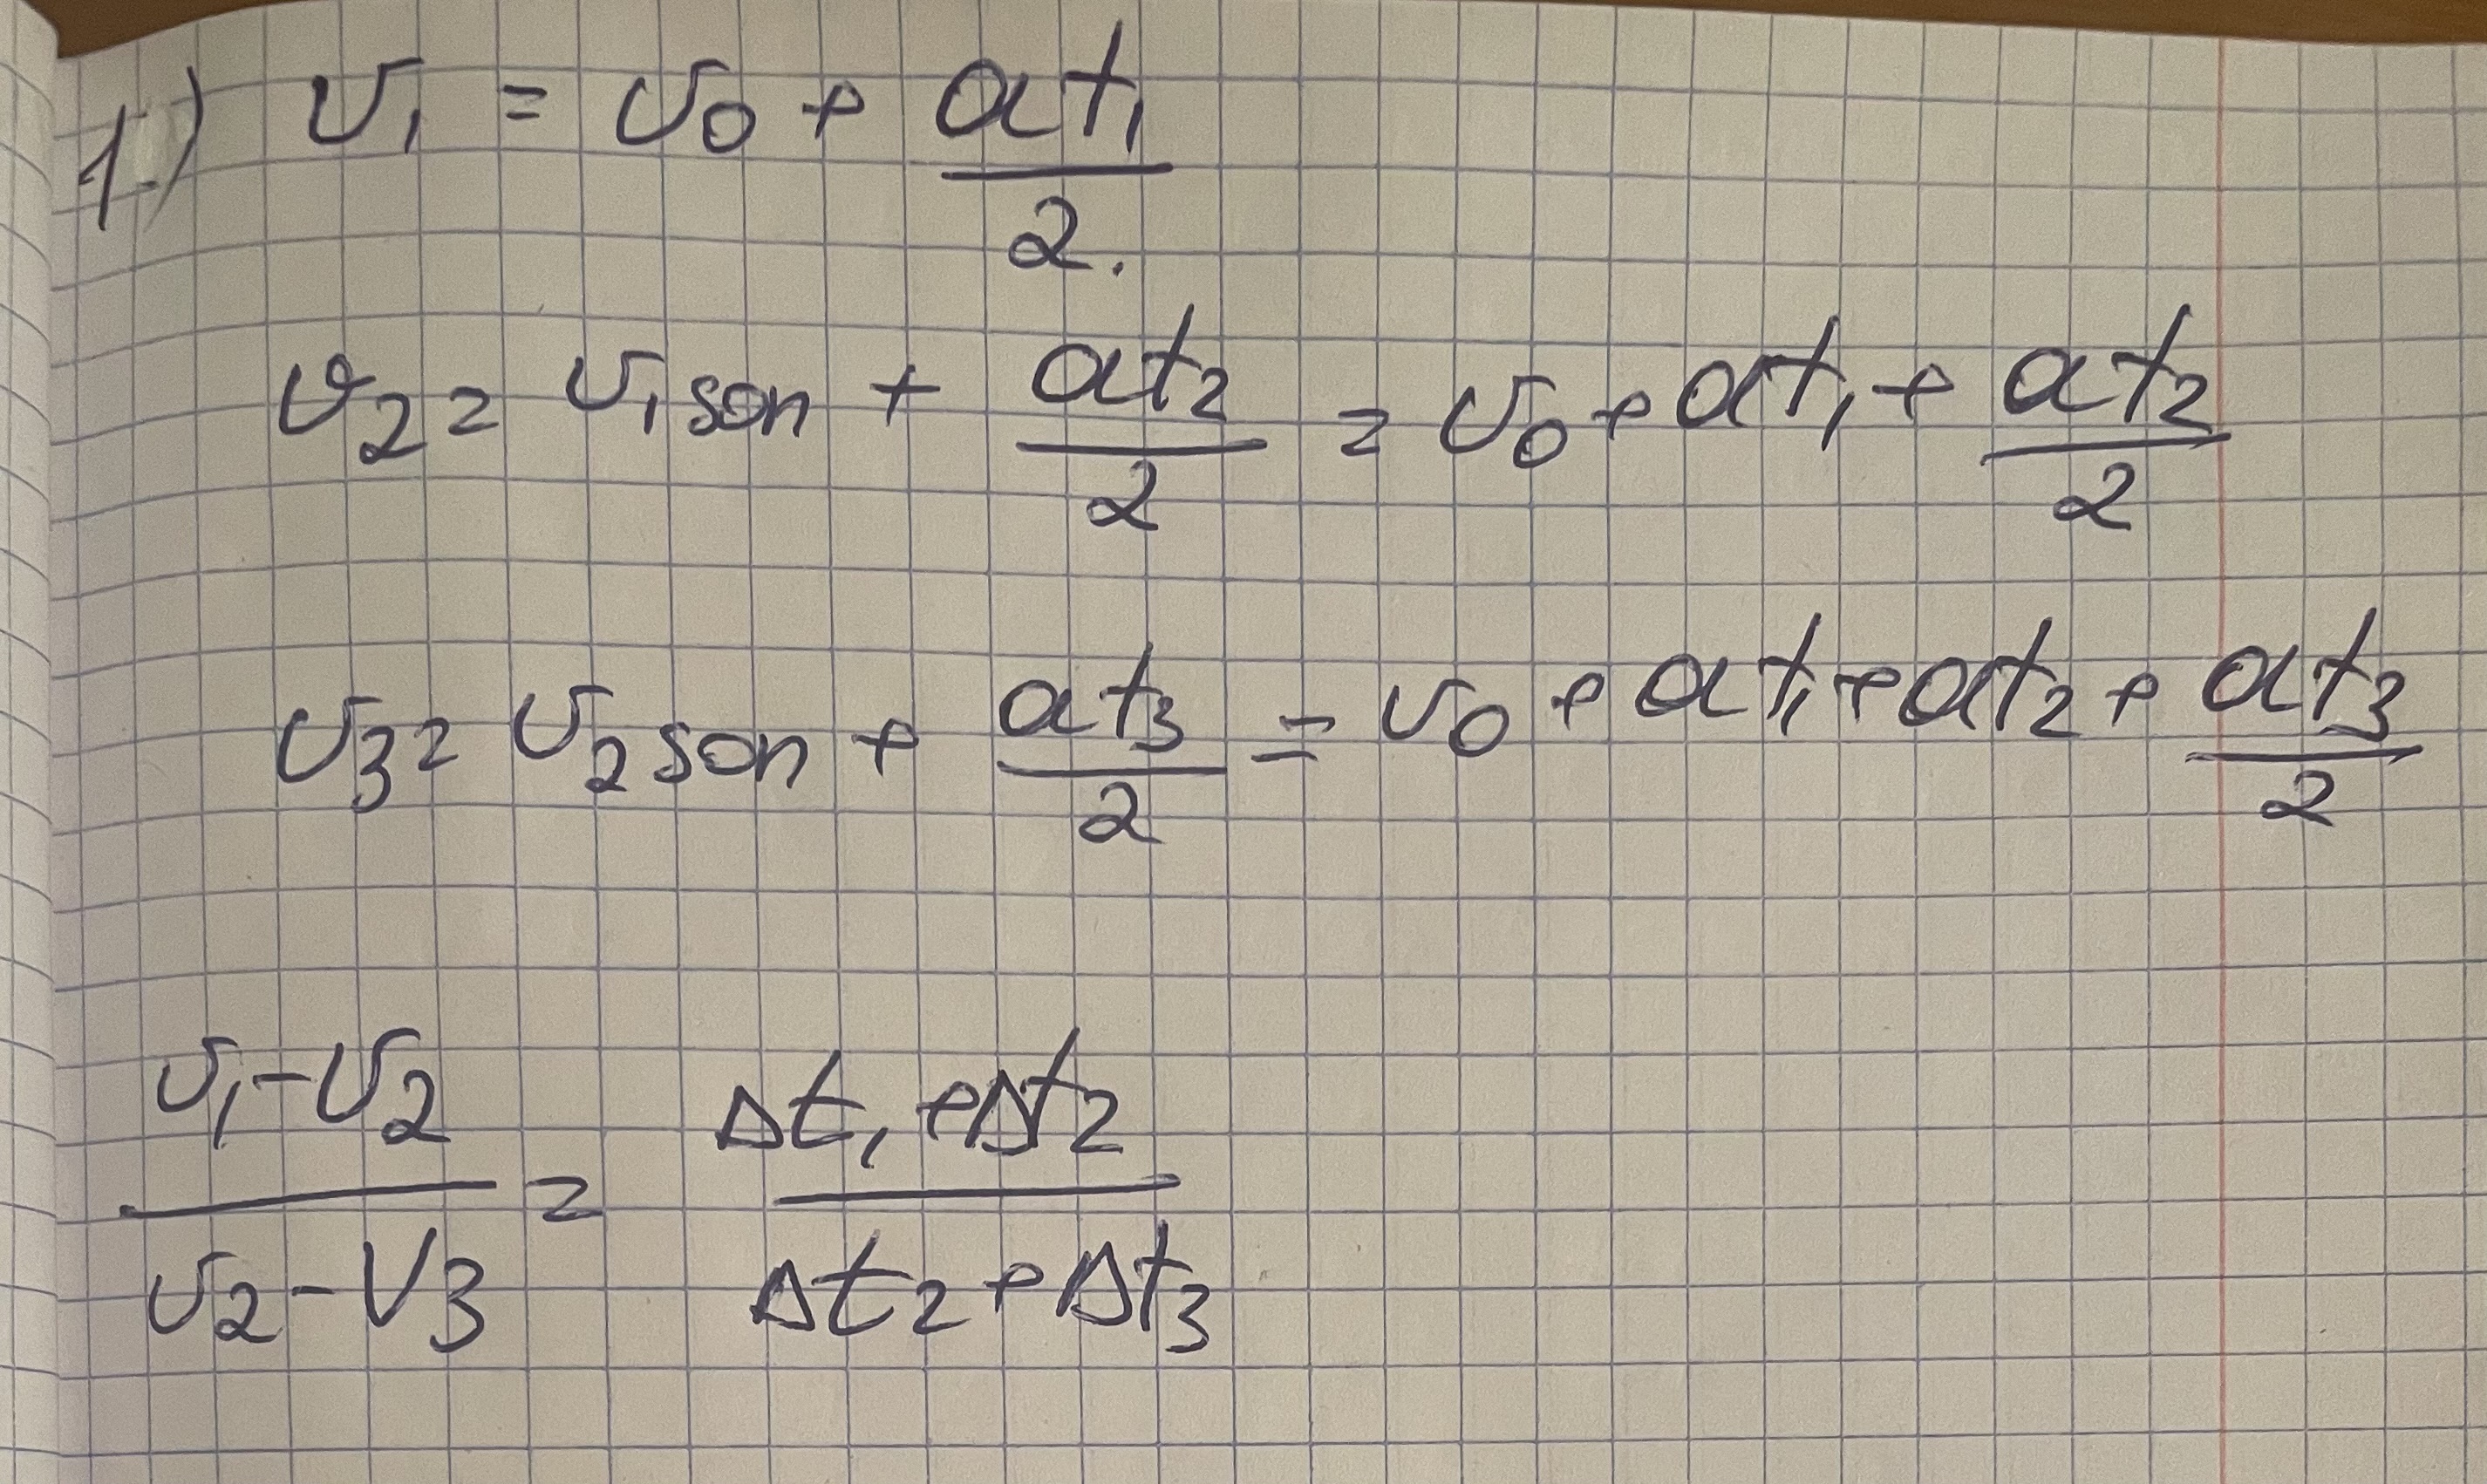 1) v₁ = v₀ + at₁/2.
v₂ = v₁ son + at₂/2 = v₀ + at₁ + at₂/2
v₃ = v₂ son + at₃/2 = v₀ + at₁ + at₂ + at₃/2
(v₁ - v₂)/(v₂ - v₃) = (Δt₁ + Δt₂)/(Δt₂ + Δt₃)